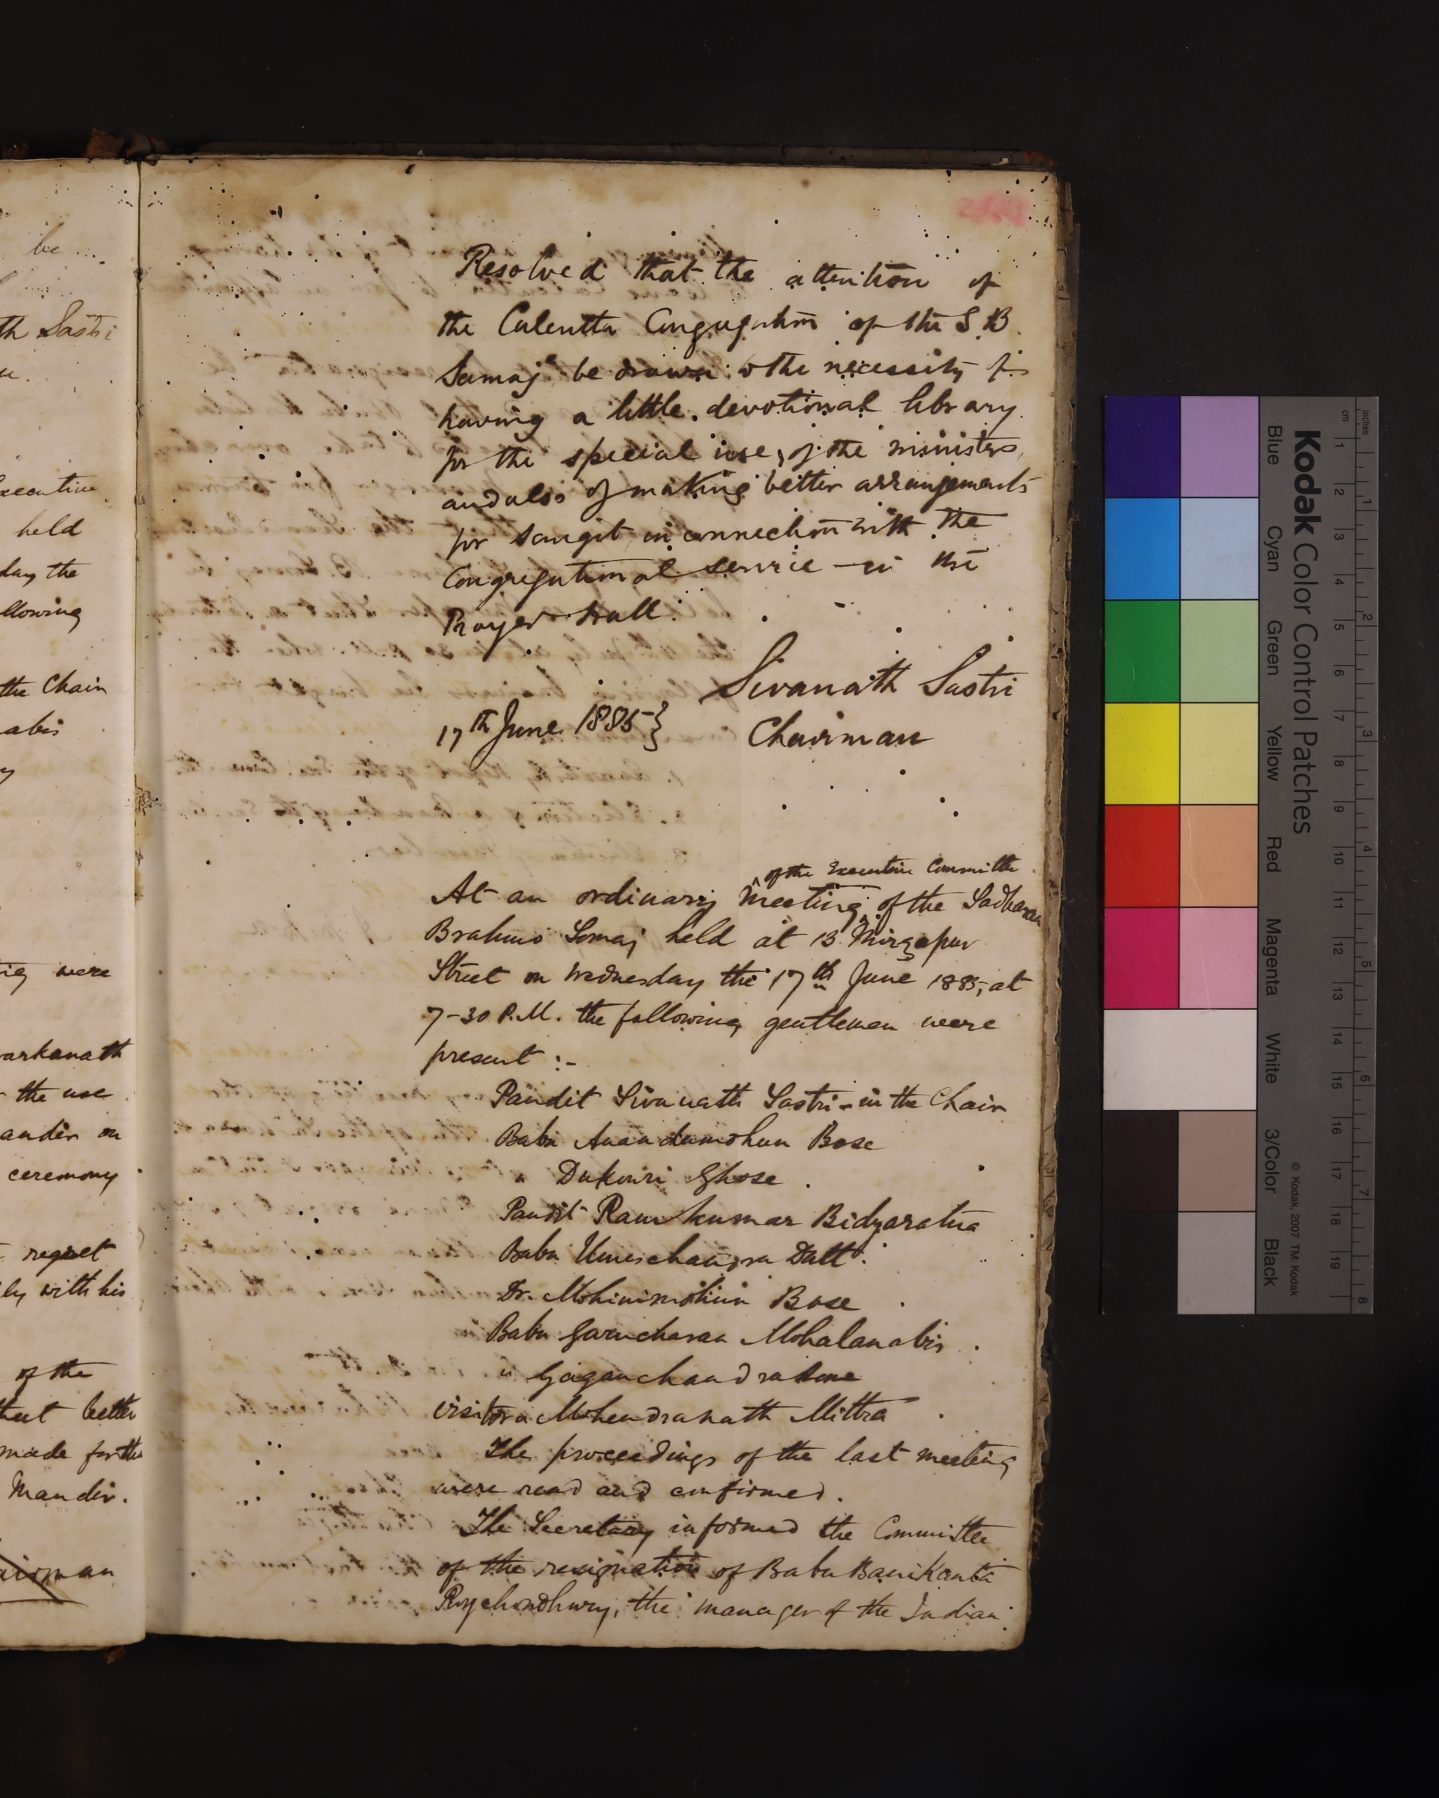 be
th Sastri
Executive
held
day the
llowing
the Chair
alabis
were
arkanath
the use
ander on
ceremony
regret
ly with his
of the
that better
made for the
Mandir.
airman
Resolved that the attention of
the Calcutta Congregation of the S. B.
Samaj be drawn to the necessity of
having a little devotional library
for the special use, of the ministers,
and also of making better arrangements
for sangit in connection with the
Congregational service in the
Prayer Hall.
Sivanath Sastri
17th June 1885 }
Chairman
of the Executive Committee
At an ordinary meeting of the Sadharan
Brahmo Somaj held at 13 Mirzapur
Street on Wednesday the 17th June 1885, at
7-30 P.M. the following gentlemen were
present :-
Pandit Sivanath Sastri - in the Chair
Babu Anandamohun Bose
" Dukouri Ghose
Pandit Ramkumar Bidyaratna
Babu Umeschandra Datt
Dr. Mohinimohun Bose
Babu Gurucharan Mohalanabis
" Gaganchandra Home
visitor " Mohendranath Mittra
The proceedings of the last meeting
were read and confirmed.
The Secretary informed the Committee
of the resignation of Babu Banikanta
Roychowdhury, the manager of the Indian
Kodak Color Control Patches
Blue
Cyan
Green
Yellow
Red
Magenta
White
3/Color
Black
© Kodak, 2007 TM: Kodak
cm 1 2 3 4 5 6 7 8 9 10 11 12 13 14 15 16 17 18 19
inches 1 2 3 4 5 6 7 8